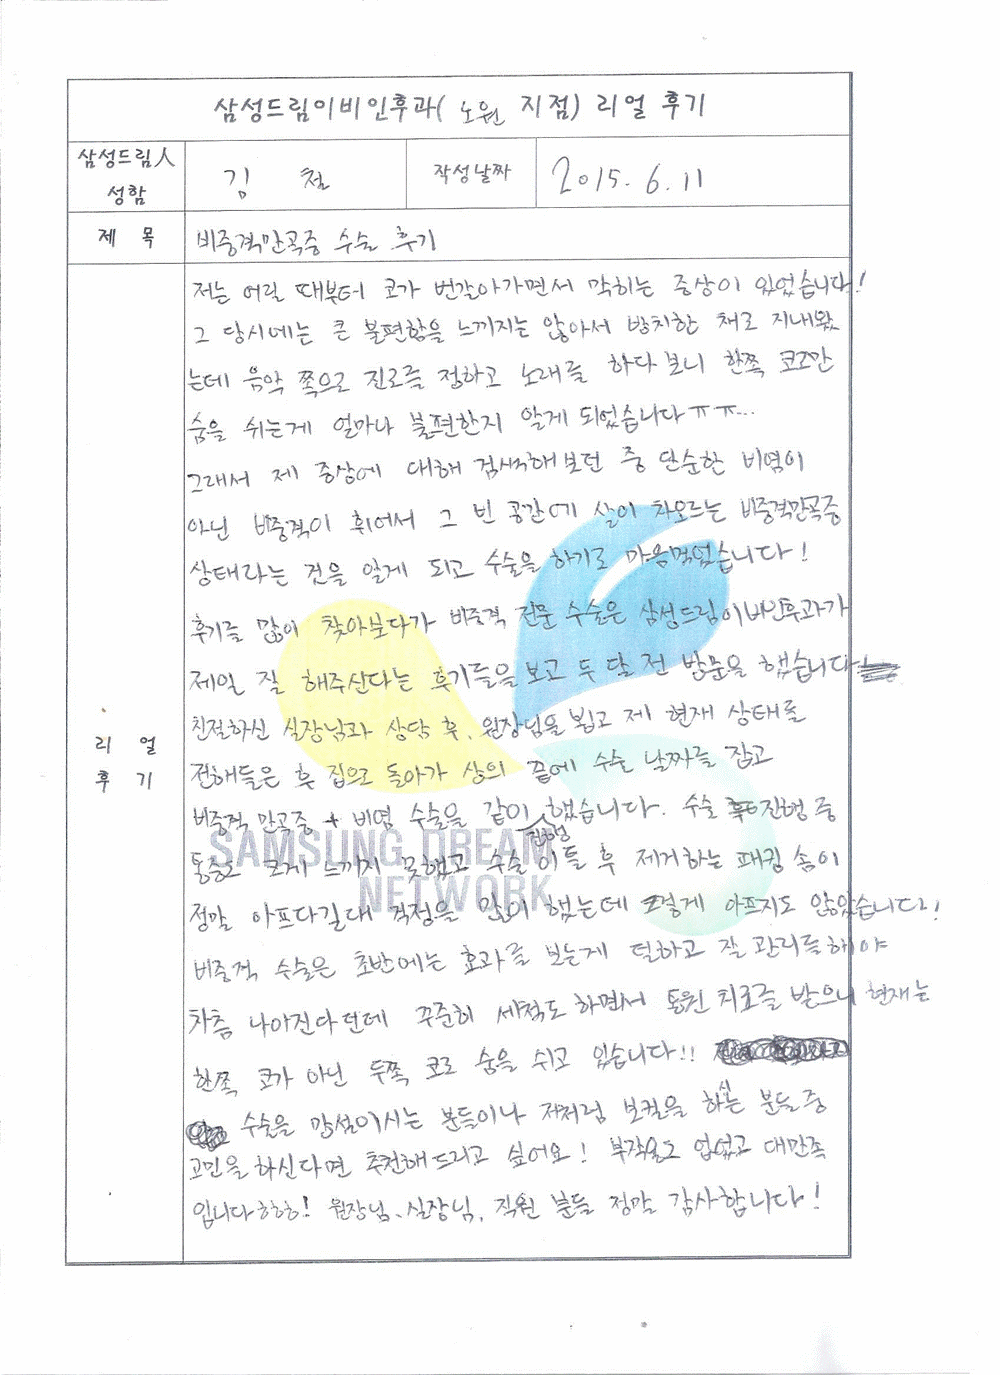 삼성드림이비인후과( 노원 지점) 리얼 후기
삼성드림人 성함
김 철
작성날짜
2015. 6. 11
제 목
비중격만곡증 수술 후기
리 얼 후 기
저는 어릴 때부터 코가 번갈아가면서 막히는 증상이 있었습니다!
그 당시에는 큰 불편함을 느끼지는 않아서 방치한 채로 지내왔
는데 음악 쪽으로 진로를 정하고 노래를 하다 보니 한쪽 코로만
숨을 쉬는게 얼마나 불편한지 알게 되었습니다ㅠㅠ...
그래서 제 증상에 대해 검색해보던 중 단순한 비염이
아닌 비중격이 휘어서 그 빈 공간에 살이 차오르는 비중격만곡증
상태라는 것을 알게 되고 수술을 하기로 마음먹었습니다!
후기를 많이 찾아보다가 비중격 전문 수술은 삼성드림이비인후과가
제일 잘 해주신다는 후기들을 보고 두 달 전 방문을 했습니다
친절하신 실장님과 상담 후, 원장님을 뵙고 제 현재 상태를
전해들은 후 집으로 돌아가 상의 끝에 수술 날짜를 잡고
비중격 만곡증 + 비염 수술을 같이 진행했습니다. 수술 진행 중
통증도 크게 느끼지 못했고 수술 이틀 후 제거하는 패킹 솜이
정말 아프다길래 걱정을 많이 했는데 그렇게 아프지도 않았습니다!
비중격 수술은 초반에는 효과를 보는게 덜하고 잘 관리를해야
차츰 나아진다던데 꾸준히 세척도 하면서 통원 치료를 받으니 현재는
한쪽 코가 아닌 두쪽 코로 숨을 쉬고 있습니다!!
수술을 망설이시는 분들이나 저처럼 보컬을 하시는 분들 중
고민을 하신다면 추천해 드리고 싶어요! 부작용도 없었고 대만족
입니다ㅎㅎㅎ! 원장님、실장님, 직원 분들 정말 감사합니다!
SAMSUNG DREAM
NETWORK